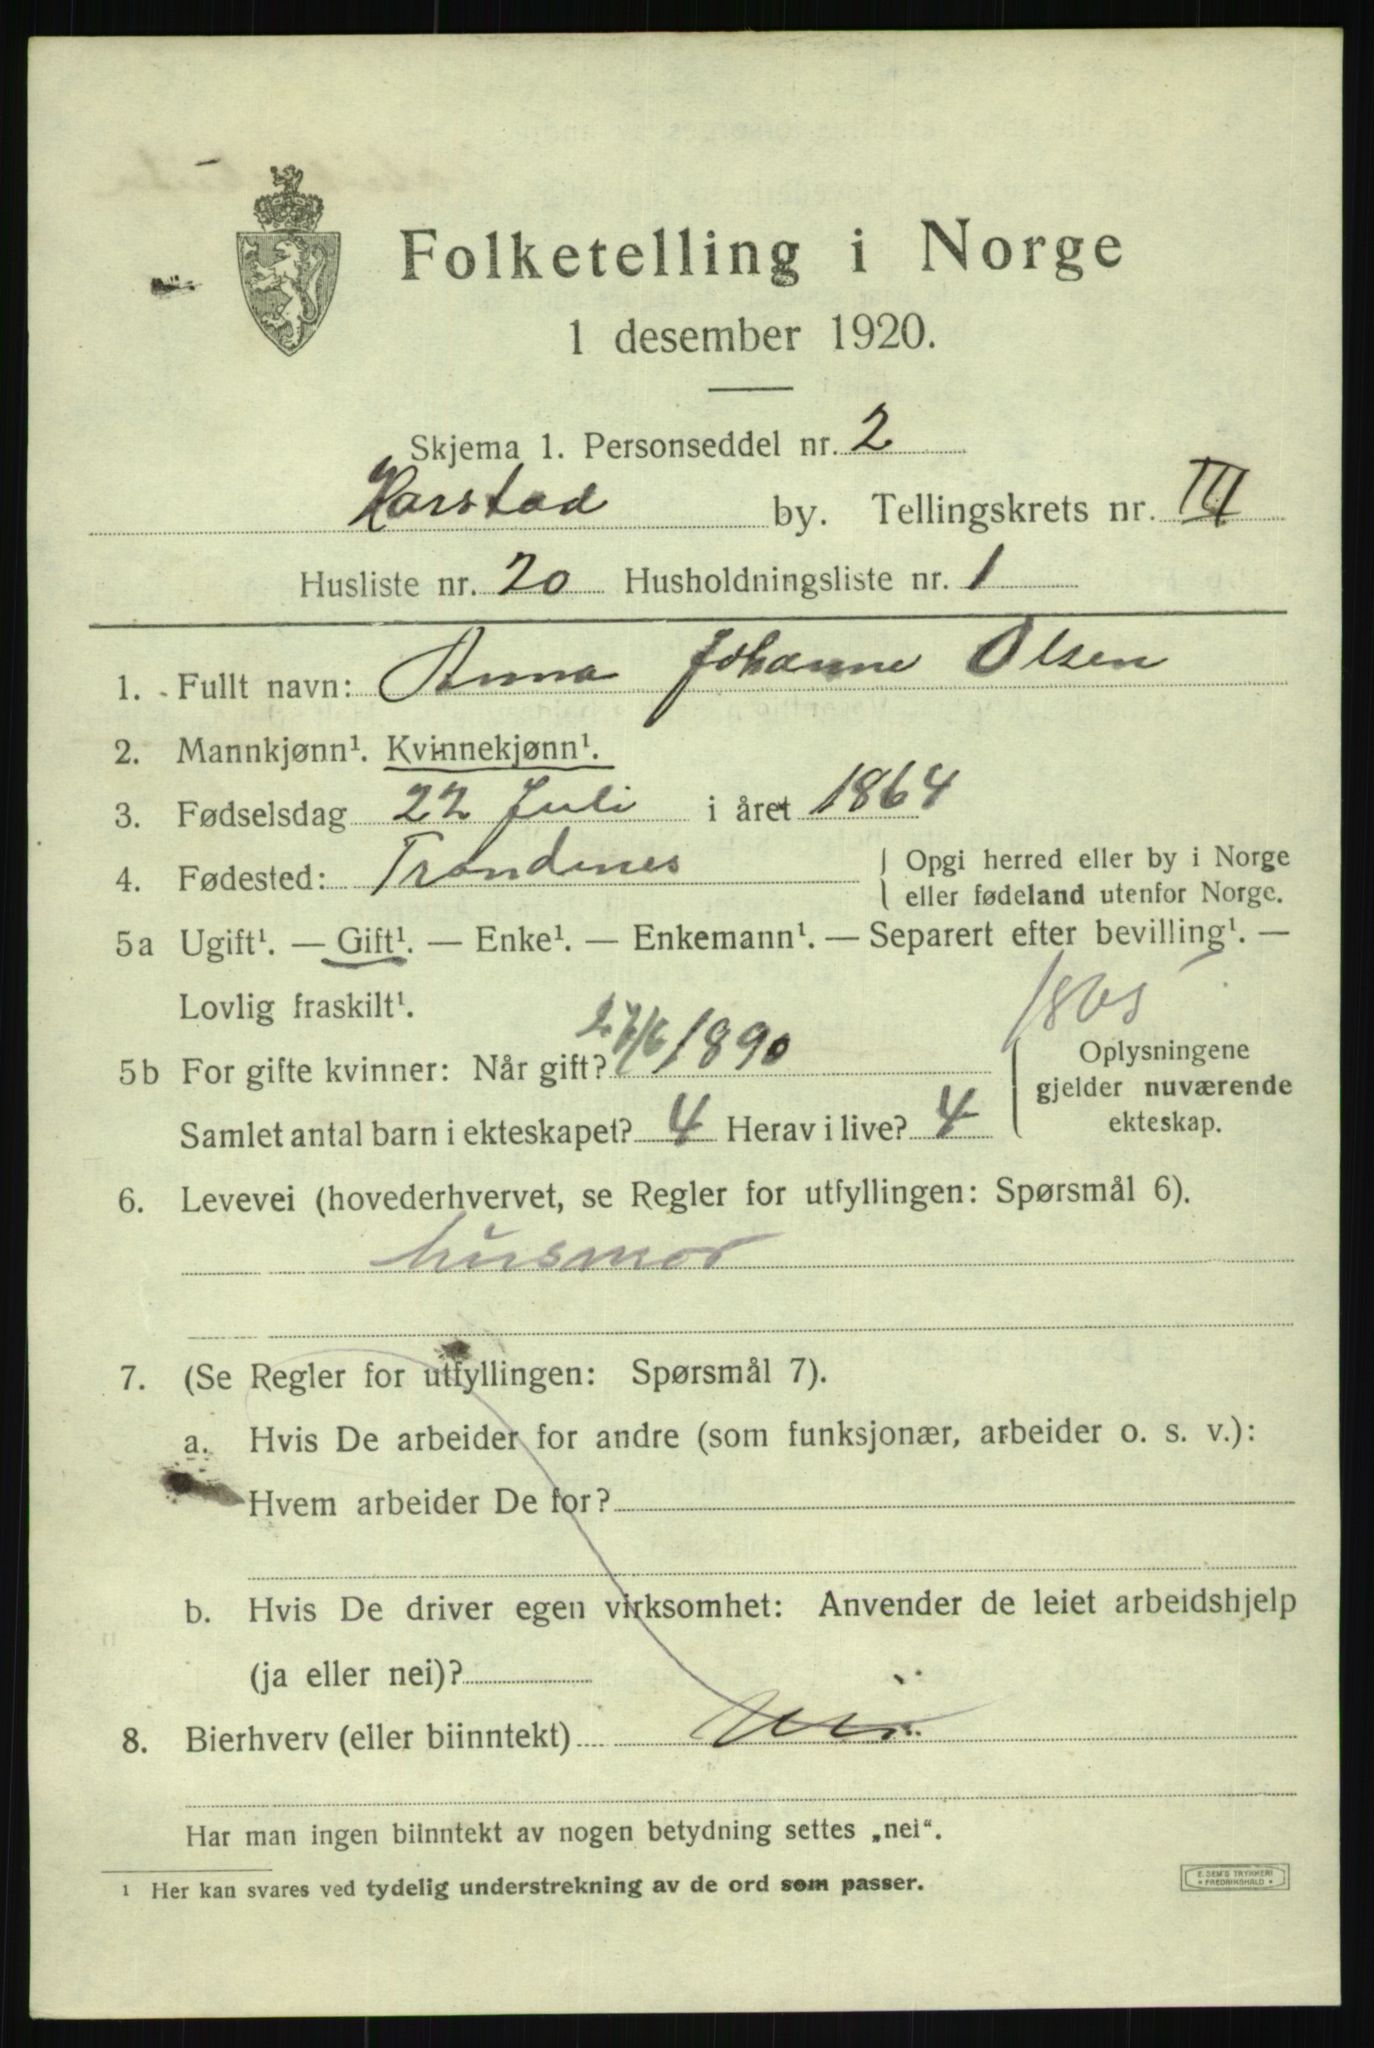 Folketelling i Norge
1 desember 1920.
Skjema 1. Personseddel nr. 2
Harstad by. Tellingskrets nr. III
Husliste nr. 20 Husholdningsliste nr. 1
1. Fullt navn: Anna Johanne Olsen
2. Mannkjønn¹. Kvinnekjønn¹.
3. Fødselsdag 22 Juli i året 1864
4. Fødested: Trondenes { Opgi herred eller by i Norge
eller fødeland utenfor Norge.
5a Ugift¹. — Gift¹. — Enke¹. — Enkemann¹. — Separert efter bevilling¹. —
Lovlig fraskilt¹.
1865
5b For gifte kvinner: Når gift? 27/6 1890
Samlet antal barn i ekteskapet? 4 Herav i live? 4
{ Oplysningene
gjelder nuværende
ekteskap.
6. Levevei (hovederhvervet, se Regler for utfyllingen: Spørsmål 6).
husmor
7. (Se Regler for utfyllingen: Spørsmål 7).
a. Hvis De arbeider for andre (som funksjonær, arbeider o. s. v.):
Hvem arbeider De for?
b. Hvis De driver egen virksomhet: Anvender de leiet arbeidshjelp
(ja eller nei)?
8. Bierhverv (eller biinntekt)
Har man ingen biinntekt av nogen betydning settes „nei“.
¹ Her kan svares ved tydelig understrekning av de ord som passer.
E. SEM'S TRYKKERI
* FREDRIKSHALD *